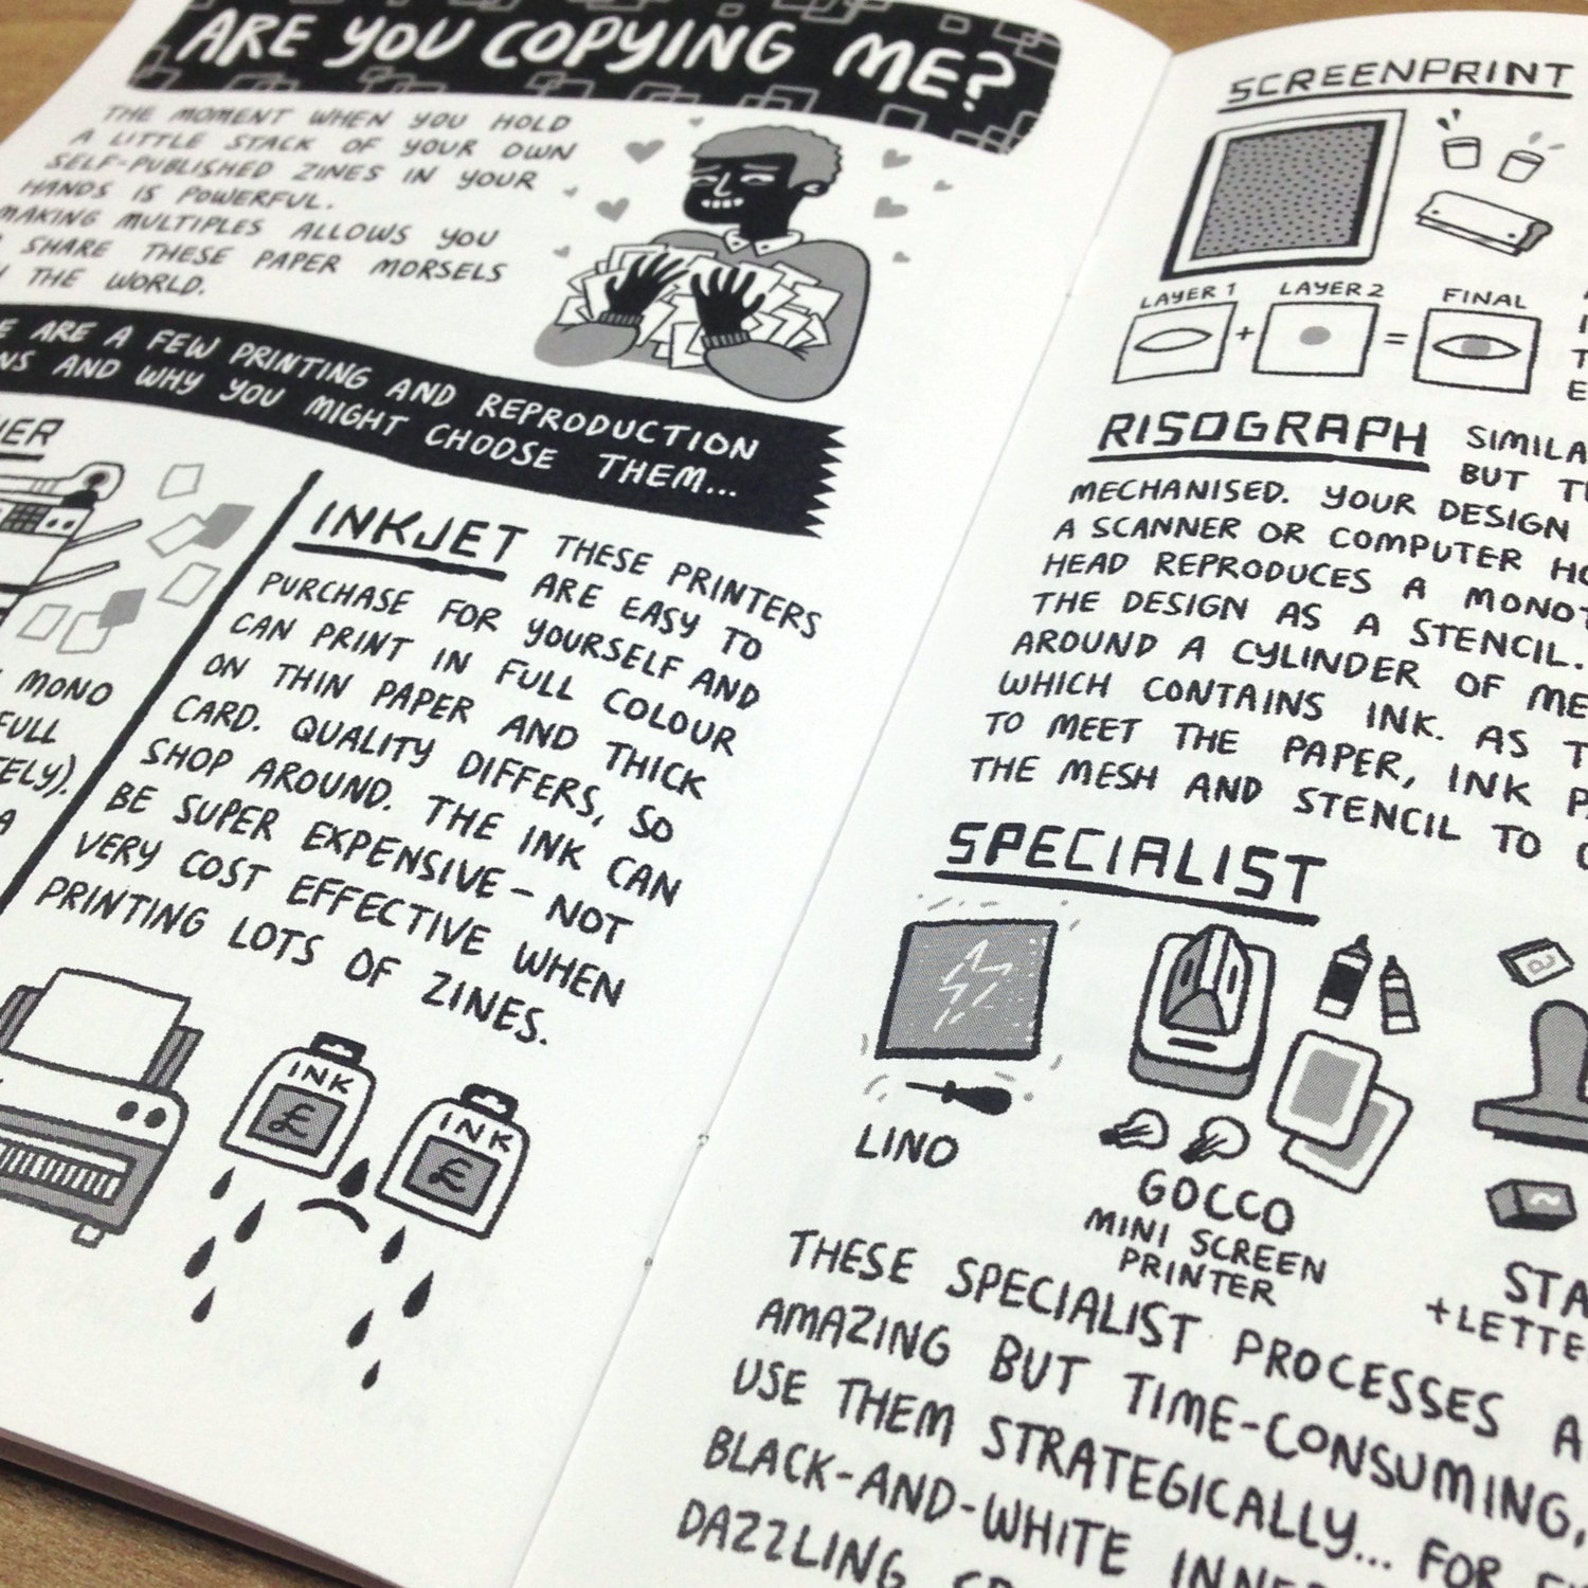 ARE YOU COPYING ME?
THE MOMENT WHEN YOU HOLD
A LITTLE STACK OF YOUR OWN
SELF-PUBLISHED ZINES IN YOUR
HANDS IS POWERFUL.
MAKING MULTIPLES ALLOWS YOU
SHARE THESE PAPER MORSELS
THE WORLD.
ARE A FEW PRINTING AND REPRODUCTION
AND WHY YOU MIGHT CHOOSE THEM...
MONO
FULL
A
INKJET THESE PRINTERS
ARE EASY TO
PURCHASE FOR YOURSELF AND
CAN PRINT IN FULL COLOUR
ON THIN PAPER AND THICK
CARD. QUALITY DIFFERS, SO
SHOP AROUND. THE INK CAN
BE SUPER EXPENSIVE – NOT
VERY COST EFFECTIVE WHEN
PRINTING LOTS OF ZINES.
INK
£
INK
£
SCREENPRINT
LAYER 1
LAYER 2
FINAL
+
=
RISOGRAPH
BUT
MECHANISED. YOUR DESIGN
A SCANNER OR COMPUTER
HEAD REPRODUCES A
THE DESIGN AS A STENCIL.
AROUND A CYLINDER OF
WHICH CONTAINS INK. AS
TO MEET THE PAPER, INK
THE MESH AND STENCIL TO
SPECIALIST
LINO
GOCCO
MINI SCREEN
PRINTER
THESE SPECIALIST PROCESSES
AMAZING BUT TIME-CONSUMING,
USE THEM STRATEGICALLY... FOR
BLACK-AND-WHITE
DAZZLING